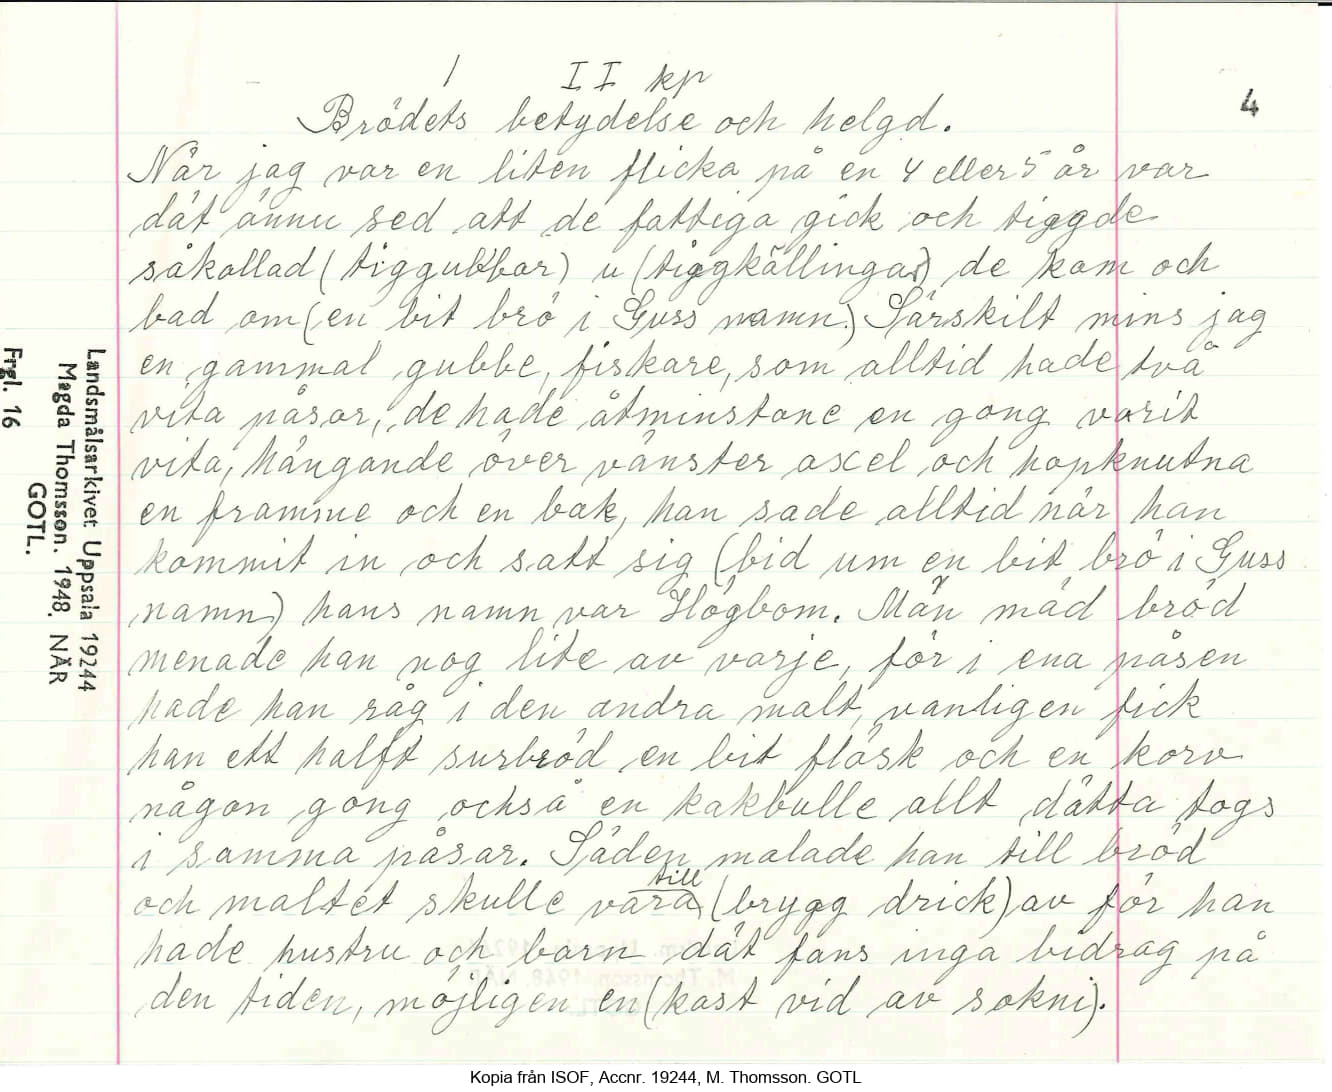 1 II kp
4
Brödets betydelse och helgd.
När jag var en liten flicka på en 4 eller 5 år var
dät ännu sed att de fattiga gick och tiggde
såkallad (tiggubbar) u (tiggkällingar) de kom och
bad om (en bit brö i Guss namn.) Särskilt mins jag
en gammal gubbe, fiskare, som alltid hade två
vita påsar, de hade åtminstone en gong varit
vita, hängande över vänster axel och hopknutna
en framme och en bak, han sade alltid när han
kommit in och satt sig (bid um en bit brö i Guss
namn) hans namn var Högbom. Män mäd bröd
menade han nog lite av varje, för i ena påsen
hade han råg i den andra malt, vanligen fick
han ett halft surbröd en bit fläsk och en korv
någon gong också en kakbulle allt dätta togs
i samma påsar. Säden malade han till bröd
och maltet skulle vara till (brygg drick) av för han
hade hustru och barn dät fans inga bidrag på
den tiden, möjligen en (kast vid av sokni).
Landsmålsarkivet Uppsala 19244
Magda Thomsson. 1948. NÄR
GOTL.
Frgl. 16
Kopia från ISOF, Accnr. 19244, M. Thomsson. GOTL